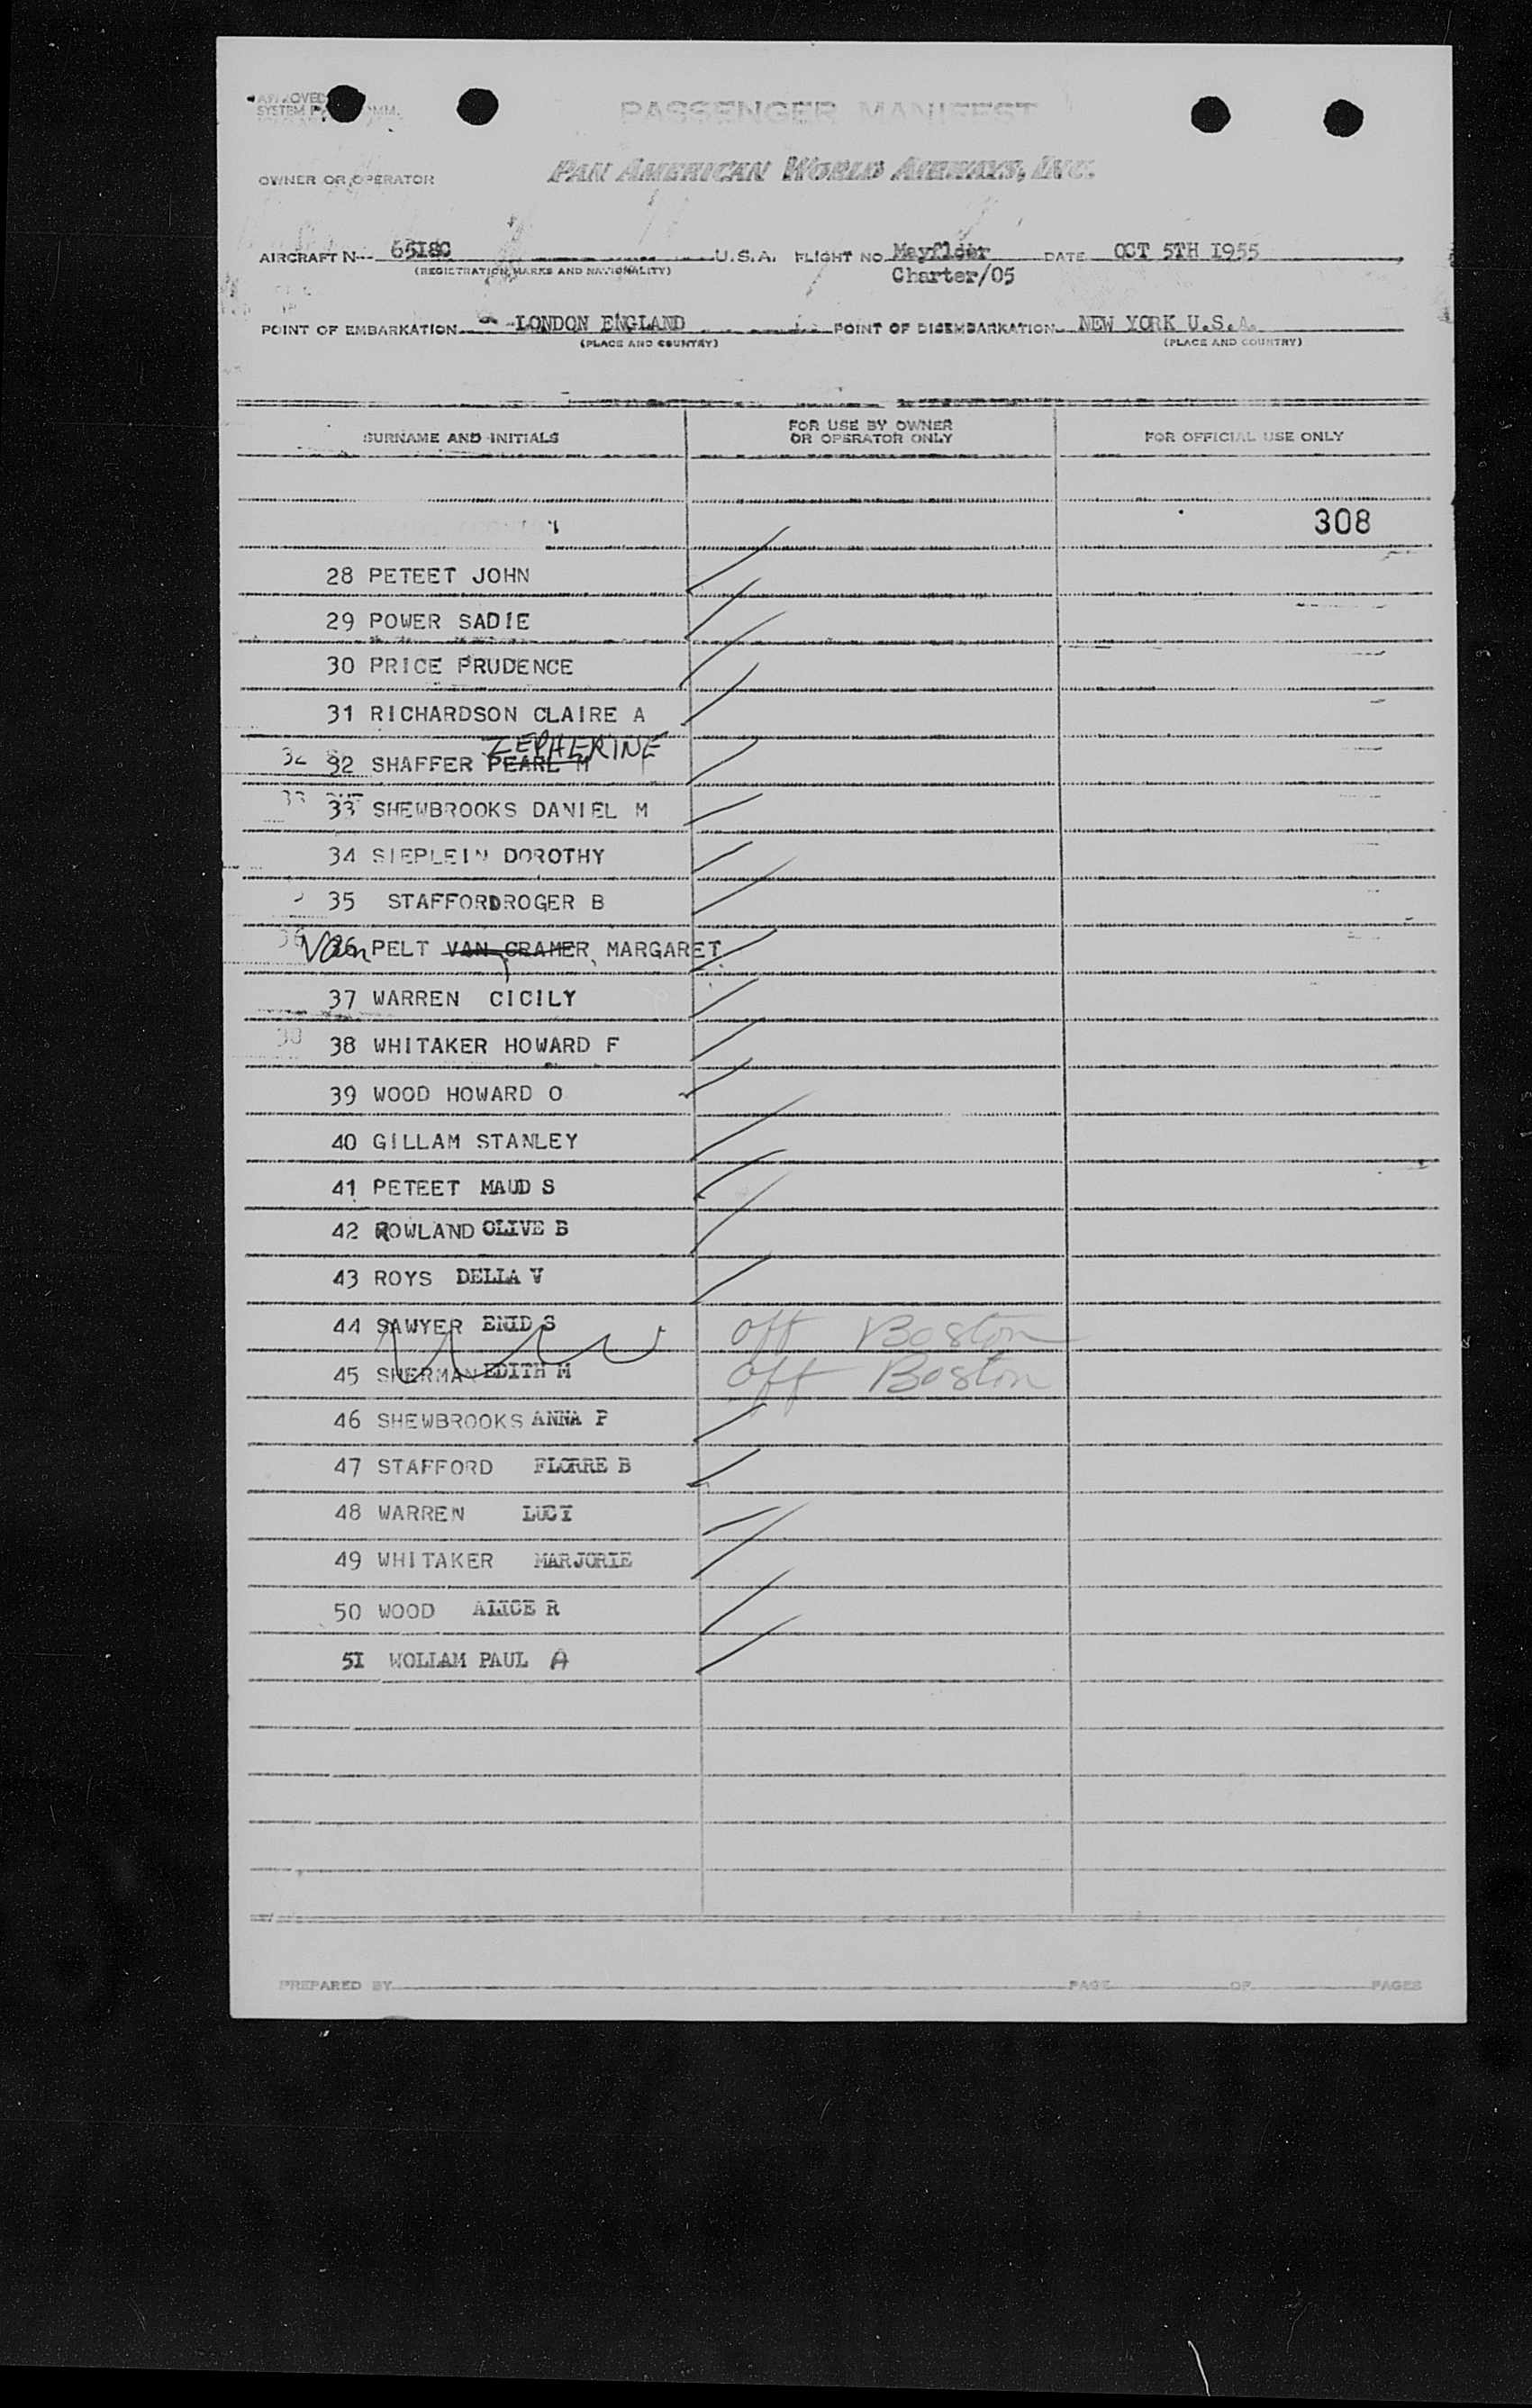 APPROVED
SYSTEM F COMM.
PASSENGER MANIFEST
OWNER OR OPERATOR PAN AMERICAN WORLD AIRWAYS, INC.
AIRCRAFT N 6518C U.S.A. FLIGHT NO. Mayfloer DATE OCT 5TH I955
(REGISTRATION MARKS AND NATIONALITY) Charter/05
POINT OF EMBARKATION LONDON ENGLAND POINT OF DISEMBARKATION NEW YORK U.S.A.
(PLACE AND COUNTRY) (PLACE AND COUNTRY)
SURNAME AND INITIALS FOR USE BY OWNER OR OPERATOR ONLY FOR OFFICIAL USE ONLY
308
28 PETEET JOHN
29 POWER SADIE
30 PRICE PRUDENCE
31 RICHARDSON CLAIRE A
ZEPHERINE
32 32 SHAFFER PEARL M
33 33 SHEWBROOKS DANIEL M
34 SIEPLEIN DOROTHY
35 STAFFORDROGER B
36 Van 36 PELT VAN CRAMER, MARGARET
37 WARREN CICILY
38 38 WHITAKER HOWARD F
39 WOOD HOWARD O
40 GILLAM STANLEY
41 PETEET MAUD S
42 ROWLAND OLIVE B
43 ROYS DELLA V
44 SAWYER ENID S off Boston
45 SHERMAN EDITH M off Boston
46 SHEWBROOKS ANNA P
47 STAFFORD FLORRE B
48 WARREN LUCY
49 WHITAKER MARJORIE
50 WOOD ALICE R
5I WOLLAM PAUL A
PREPARED BY PAGE OF PAGES